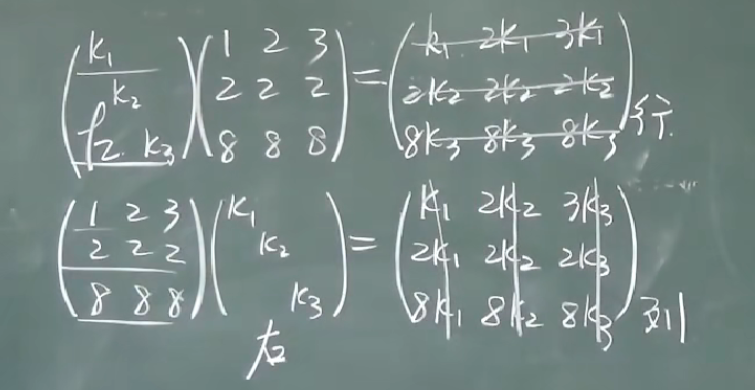 (k₁ k₂ 左 k₃)(1 2 3 2 2 2 8 8 8) = (k₁ 2k₁ 3k₁ 2k₂ 2k₂ 2k₂ 8k₃ 8k₃ 8k₃) 行
(1 2 3 2 2 2 8 8 8)(k₁ k₂ k₃) = (k₁ 2k₂ 3k₃ 2k₁ 2k₂ 2k₃ 8k₁ 8k₂ 8k₃) 列
右